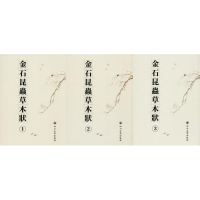 金石昆蟲草木狀
①
金石昆蟲草木狀
②
金石昆蟲草木狀
③